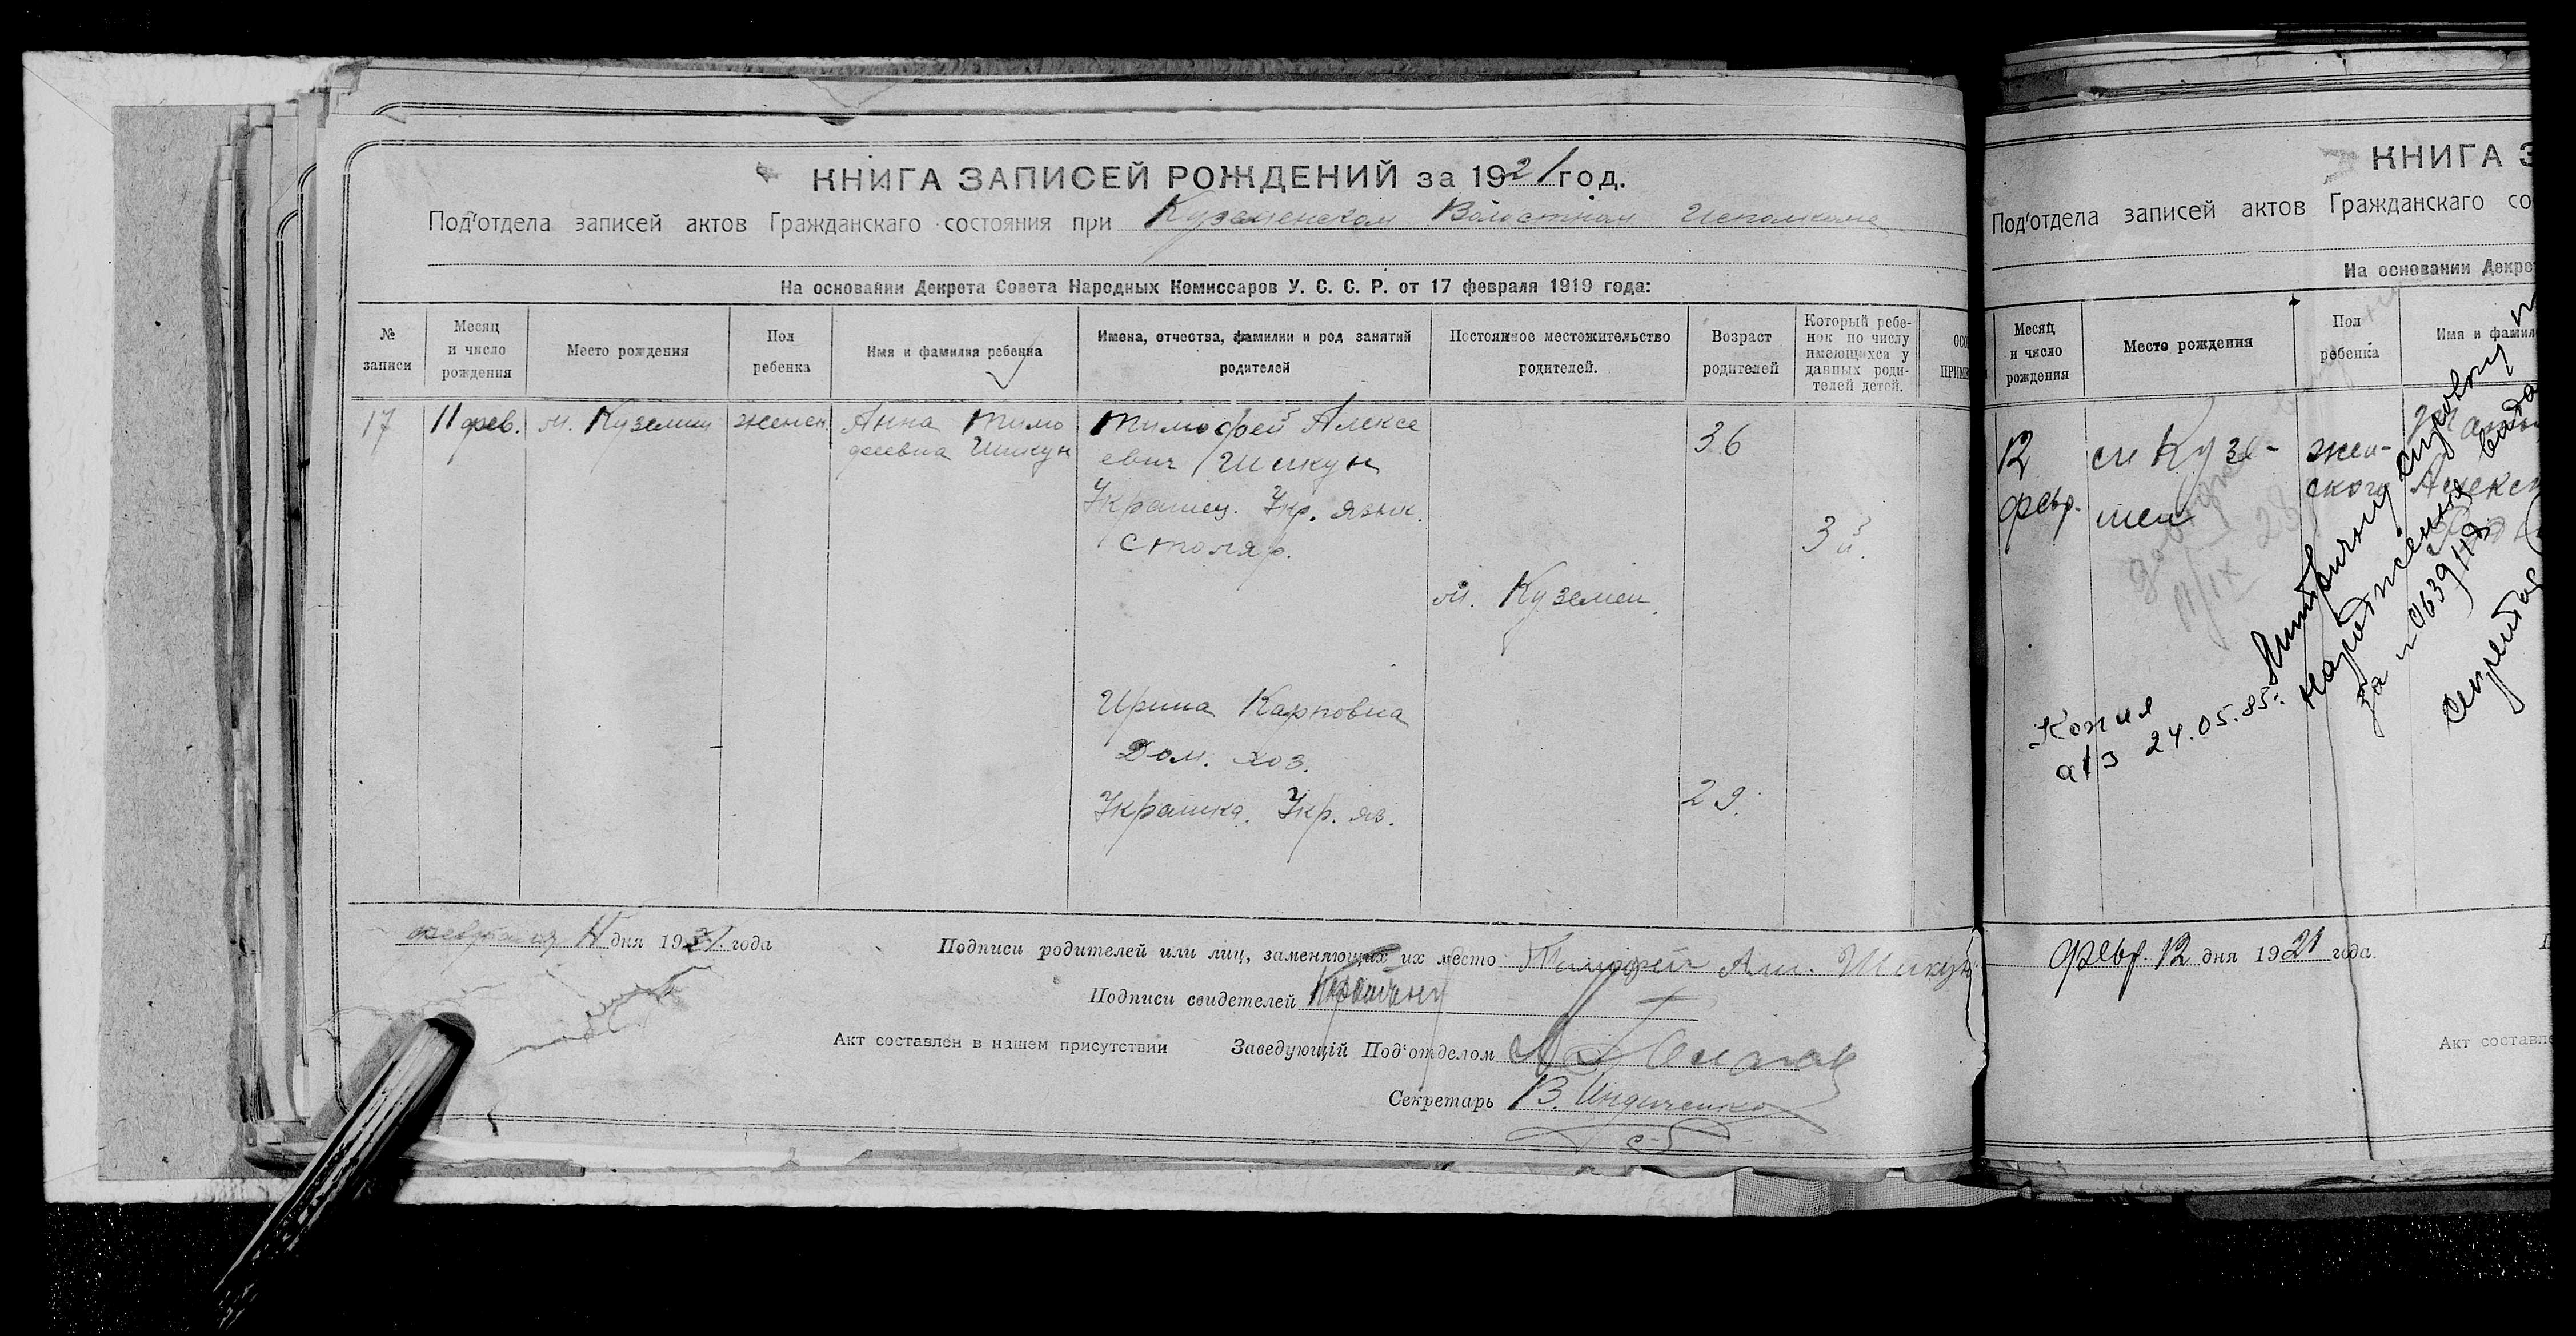 КНИГА ЗАПИСЕЙ РОЖДЕНИЙ за 1921 год.
Под'отдела записей актов Гражданскаго состояния при Куземенском Волостном Исполкоме
На основании Декрета Совета Народных Комиссаров У. С. С. Р. от 17 февраля 1919 года:
№ записи
Месяц и число рождения
Место рождения
Пол ребенка
Имя и фамилия ребенка
Имена, отчества, фамилии и род занятий родителей
Постоянное местожительство родителей.
Возраст родителей
Который ребе-
нок по числу
имеющихся у
данных роди-
телей детей.
17
11 фев.
м. Куземин
женск.
Анна Тимо
феевна Шикун
Тимофей Алексе
евич Шикун
Украинец. Укр. язык.
Столяр.
36
3й.
м. Куземен.
Ирина Карповна
Дом. хоз.
Украинка. Укр. яз.
29.
февраля 11 дня 1921 года
Подписи родителей или лиц, заменяющих их место Тимофей Ал. Шикун
Подписи свидетелей
Акт составлен в нашем присутствии
Заведующій Под'отделом
Секретарь В.
КНИГА З
Под'отдела записей актов Гражданскаго со
На основании Декре
Месяц и число рождения
Место рождения
Пол ребенка
Имя и фамил
12
февр.
м Кузе-
мен
жен-
ского
Копия
а/з 24.05.85г.
февр. 12 дня 1921 года.
Акт составле